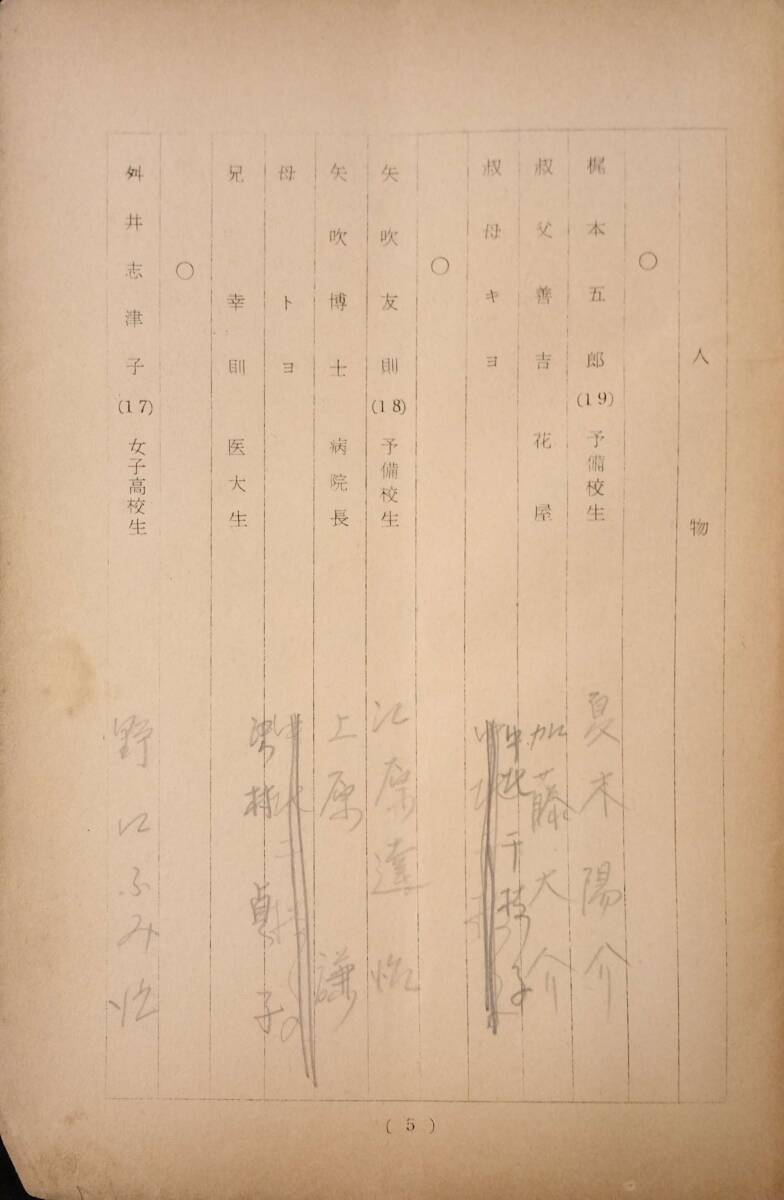 人物
○
梶本五郎(19)予備校生 夏木陽介
叔父善吉 花屋 加藤大介
叔母キヨ 中北千枝子
○
矢吹友則(18)予備校生 江原達怡
矢吹博士 病院長 上原謙
母 トヨ
兄 幸則 医大生
○
舛井志津子(17)女子高校生 野口ふみ
(5)